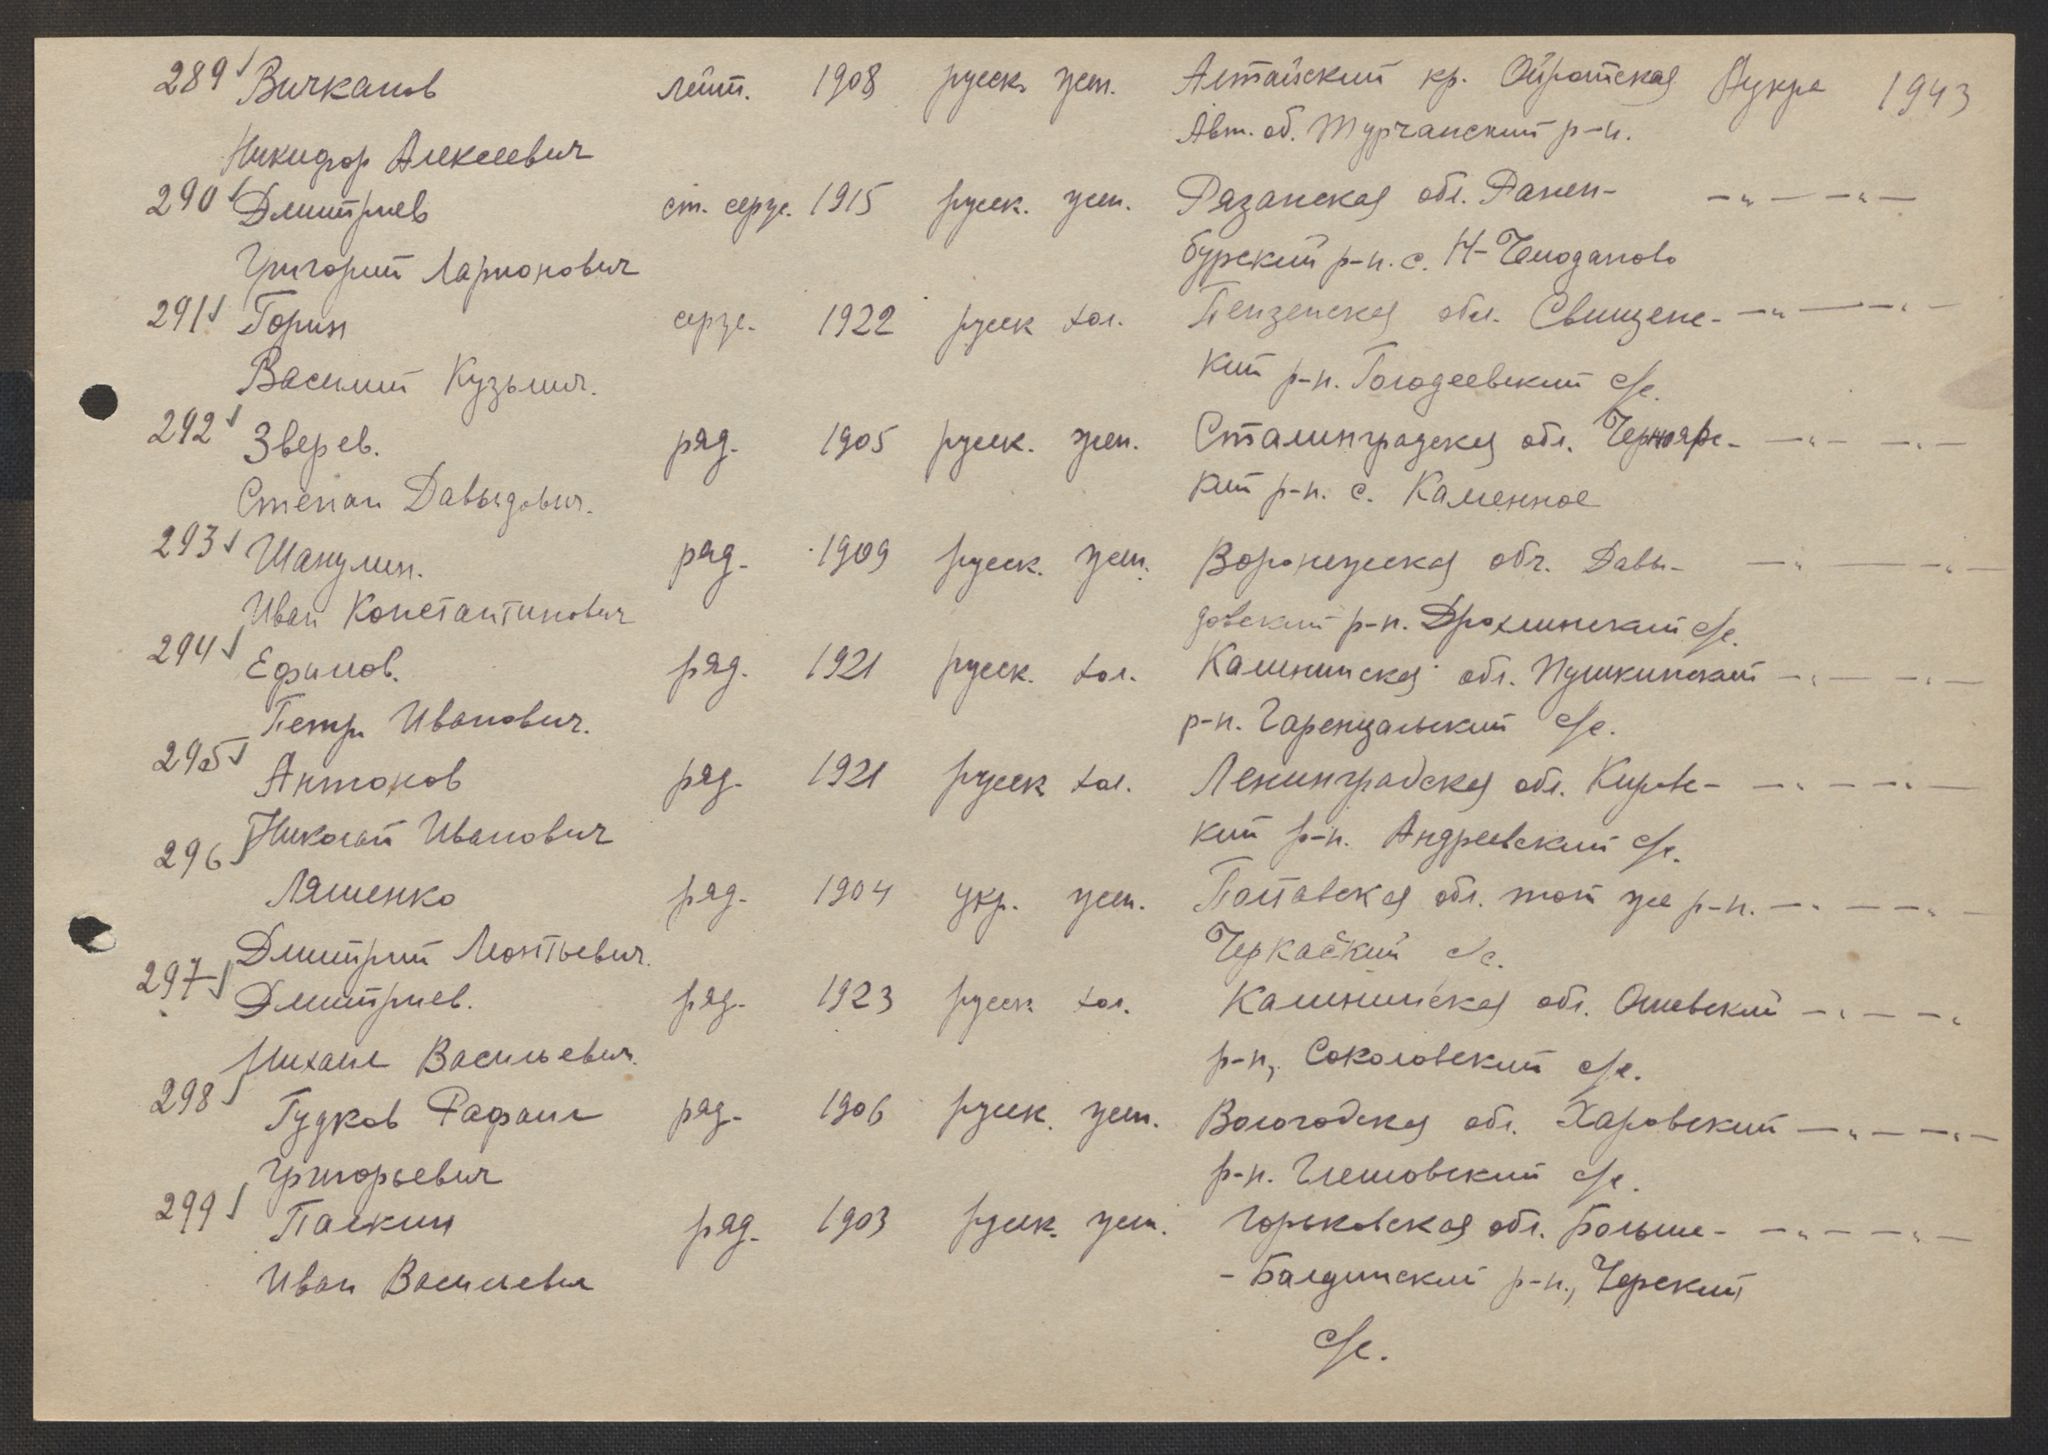 289 Вичканов лейт. 1908 русск. жен. Алтайский кр. Ойротская 1943
Авт. об. Турчанский р-н.
Никифор Алексеевич
290 Дмитриев ст. серж. 1915 русск. жен. Рязанская обл. Ранен- —"— —"—
Григорий Ларионович бурский р-н. с. Н-Чемоданово
291 Горин серж. 1922 русск хол. Пензенская обл. Свищенс- —"— —"—
Василий Кузьмич. кий р-н. с/с.
292 Зверев. ряд. 1905 русск. жен. Сталинградская обл. Черноярс- —"— —"—
Степан Давыдович. кий р-н. с. Каменное
293 Шапулин. ряд. 1909 русск. жен. Воронежская обл. Давы- —"— —"—
Иван Константинович довский р-н. Дрохлинский с/с.
294 Ефимов. ряд. 1921 русск. хол. Калининская обл. Пушкинский —"— —"—
Петр Иванович. р-н. с/с.
295 Антонов ряд. 1921 русск хол. Ленинградская обл. Кировс- —"— —"—
Николай Иванович кий р-н. Андреевский с/с.
296 Ляшенко ряд. 1904 укр. жен. Полтавская обл. той же р-н. —"— —"—
Дмитрий Леонтьевич. Черкаский с/с.
297 Дмитриев. ряд. 1923 русск хол. Калининская обл. Ошевский —"— —"
Михаил Васильевич. р-н, Соколовский с/с.
298 Гудков Рафаил ряд. 1906 русск. жен. Вологодская обл. Харовский —"— —"—
Григорьевич р-н. с/с.
299 Палкин ряд. 1903 русск. жен. Горьковская обл. Больше- —"— —"—
Иван Васильевич -Балдинский р-н, Черский
с/с.